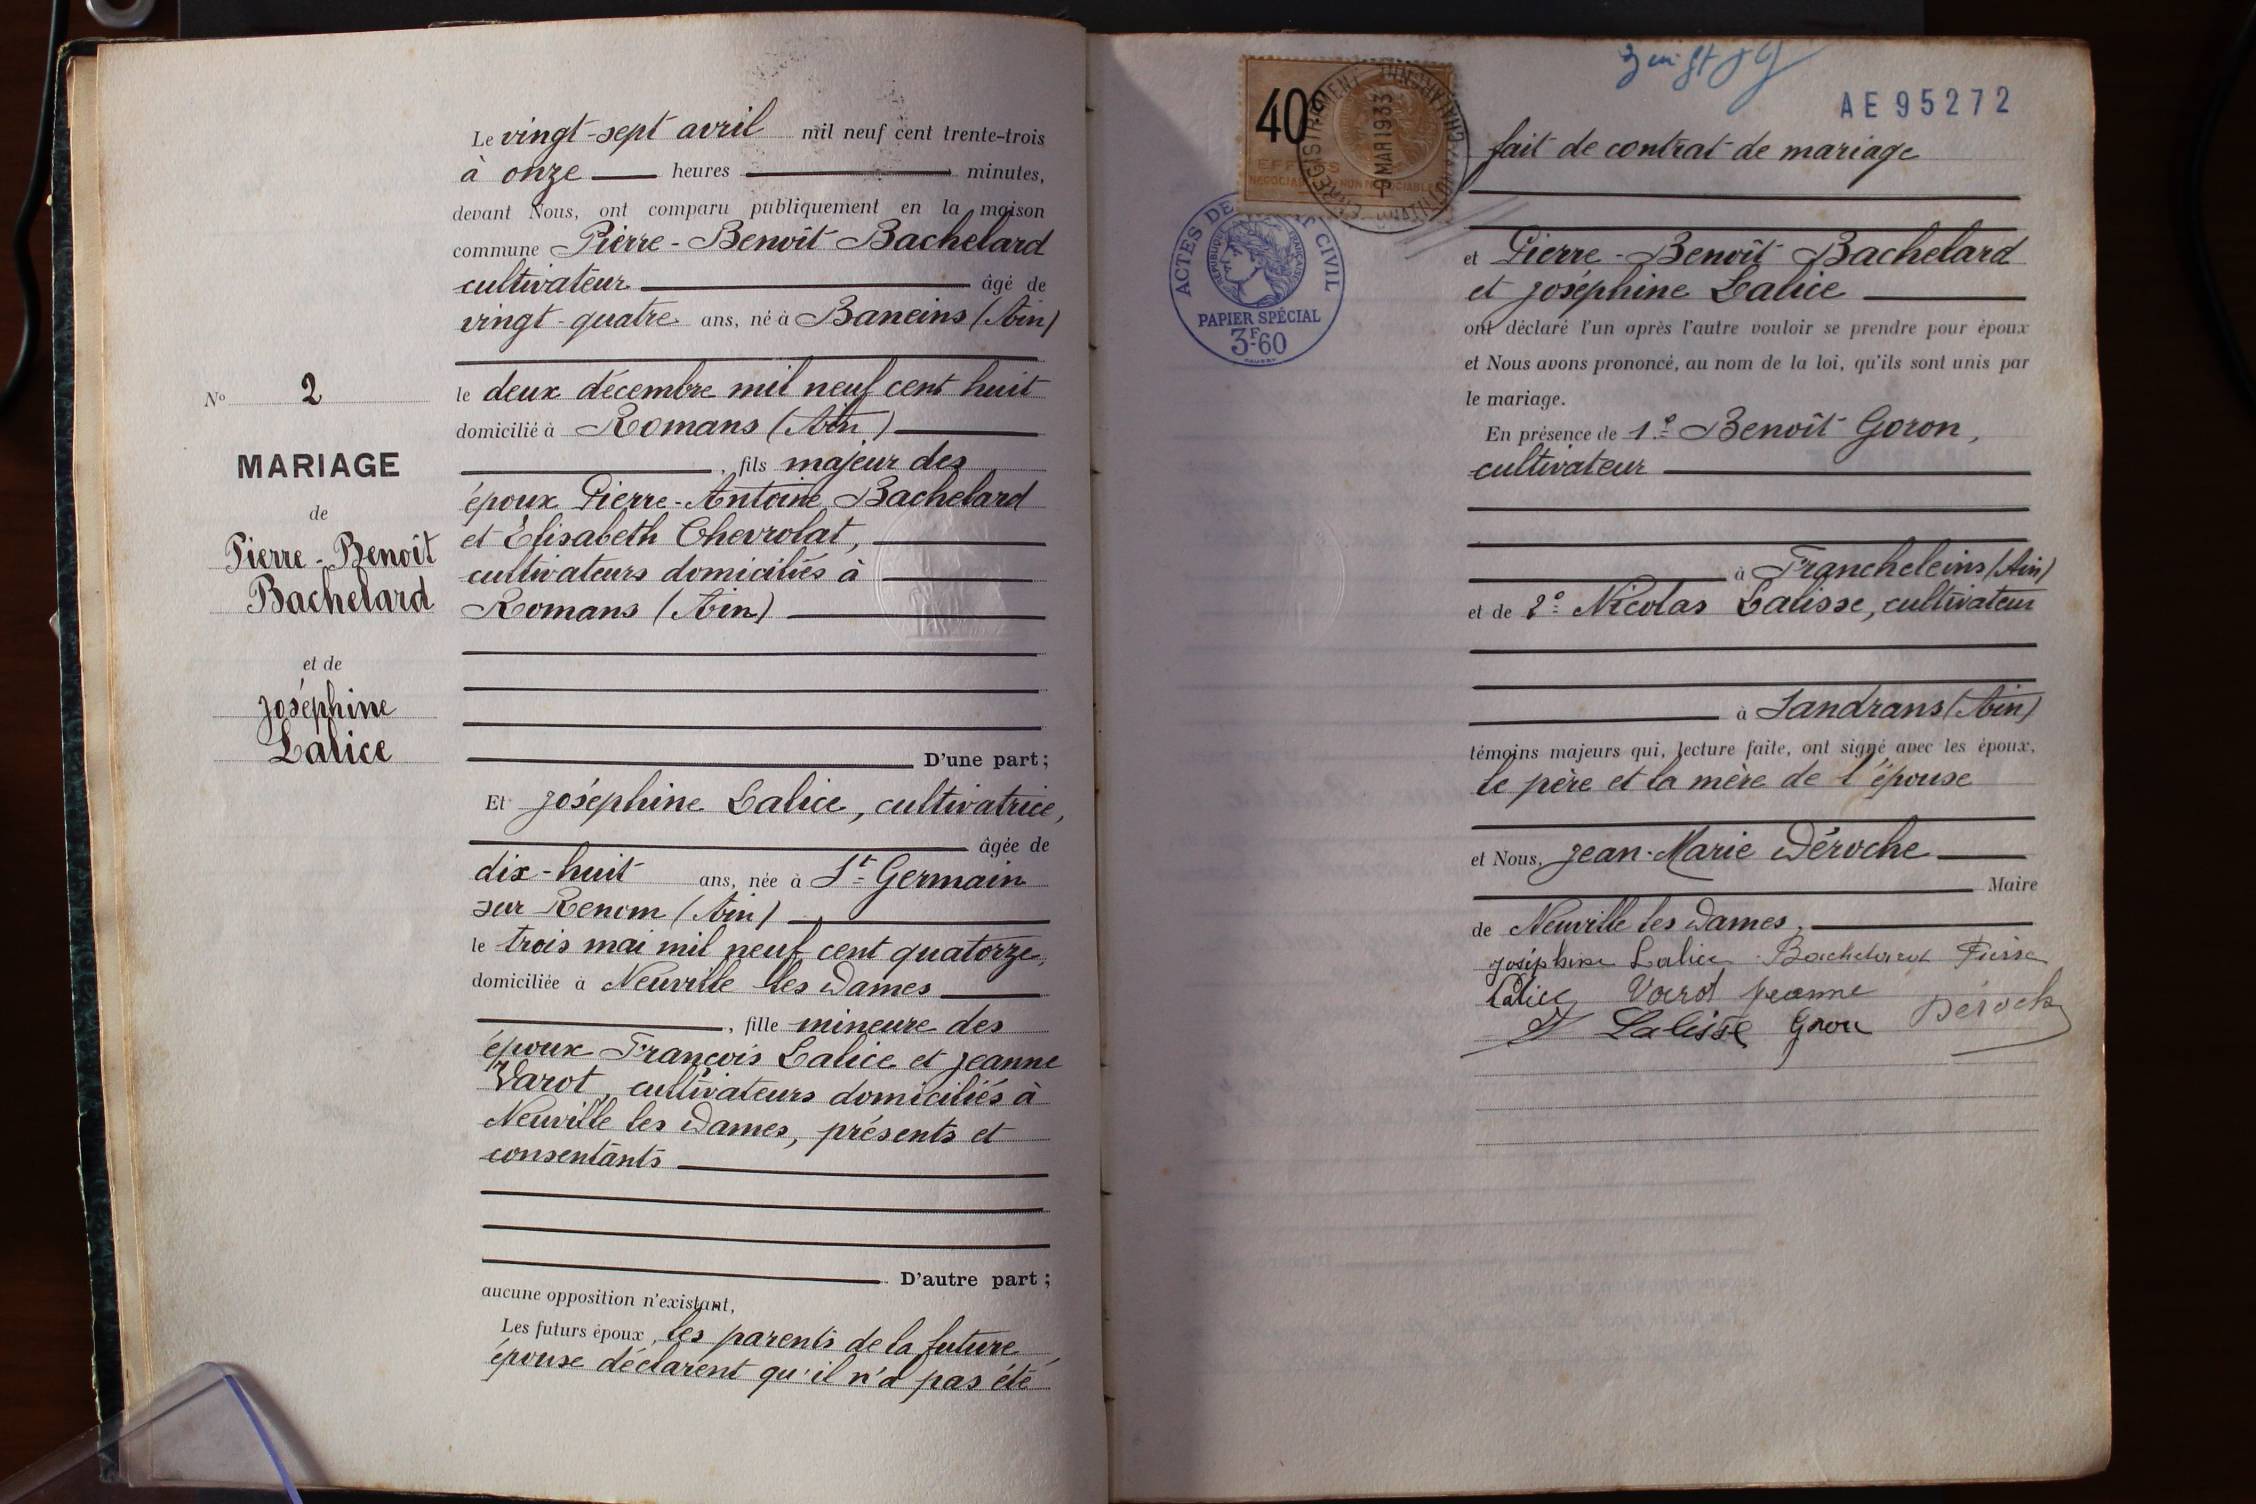 Le vingt-sept avril mil neuf cent trente-trois
à onze heures minutes,
devant Nous, ont comparu publiquement en la maison
commune Pierre-Benoît Bachelard
cultivateur âgé de
vingt-quatre ans, né à Baneins (Ain)
le deux décembre mil neuf cent huit
domicilié à Romans (Ain)
, fils majeur des
époux Pierre-Antoine Bachelard
et Élisabeth Chevrolat,
cultivateurs domiciliés à
Romans (Ain)
D'une part ;
Et Joséphine Lalice, cultivatrice,
âgée de
dix-huit ans, née à St Germain
sur Renom (Ain)
le trois mai mil neuf cent quatorze,
domiciliée à Neuville les Dames
, fille mineure des
époux François Lalice et Jeanne
Varot, cultivateurs domiciliés à
Neuville les Dames, présents et
consentants
D'autre part ;
aucune opposition n'existant,
Les futurs époux, les parents de la future
épouse déclarent qu'il n'a pas été
No 2
MARIAGE
de
Pierre-Benoît
Bachelard
et de
Joséphine
Lalice
AE 95272
40
EFFETS
NÉGOCIABLES NON NÉGOCIABLES
ENREGISTREMENT
-9 MAR 1933
ACTES DE L'ÉTAT CIVIL
RÉPUBLIQUE FRANÇAISE
PAPIER SPÉCIAL
3F.60
fait de contrat de mariage
et Pierre-Benoît Bachelard
et Joséphine Lalice
ont déclaré l'un après l'autre vouloir se prendre pour époux
et Nous avons prononcé, au nom de la loi, qu'ils sont unis par
le mariage.
En présence de 1.º Benoît Goron,
cultivateur
à Francheleins (Ain)
et de 2º Nicolas Lalisse, cultivateur
à Sandrans (Ain)
témoins majeurs qui, lecture faite, ont signé avec les époux,
le père et la mère de l'épouse
et Nous, Jean-Marie Déroche
Maire
de Neuville les Dames.
Joséphine Lalice Bachelard Pierre
Lalice Varot Jeanne Déroche
Lalisse Goron